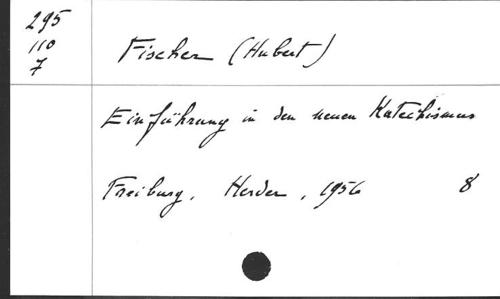 295
110
7
Fischer (Hubert)
Einführung in den neuen Katechismus
Freiburg, Herder, 1956 8